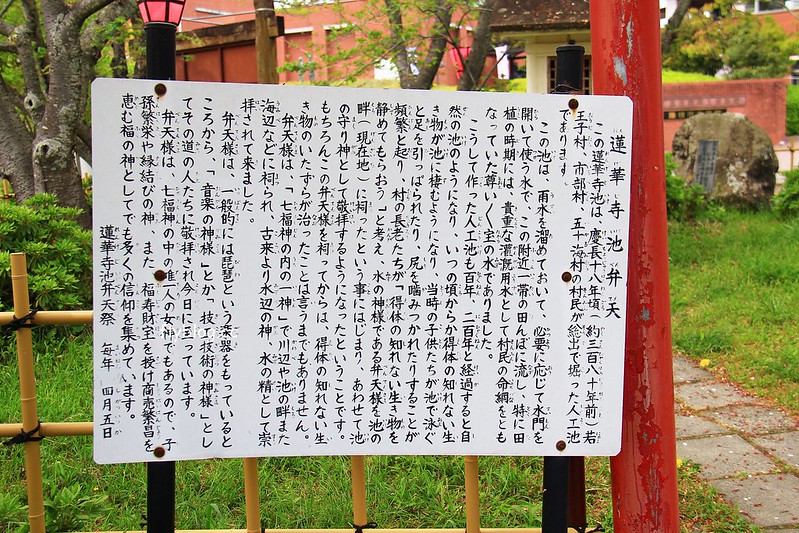 蓮華寺池弁天
この蓮華寺池は、慶長十八年頃(約三百八十年前)若
王子村、市部村、五十海村の村民が総出で堀った人工池
であります。
この池は、雨水を溜めておいて、必要に応じて水門を
開いて使う水で、この附近一帯の田んぼに流し、特に田
植の時期には、貴重な灌漑用水として村民の命綱をとも
なっていた尊いく室の水でありました。
こうして作った人工池も百年、二百年と経過すると自
然の池のようになり、いつの頃からか得体の知れない生
き物が池に棲むようになり、当時の子供たちが池で泳ぐ
と足を引っぱられたり、尻を噛みつかれたりすることが
頻繁と起り、村の長老たちが「得体の知れない生き物を
静めてもらおう」と考え、水の神様である弁天様を池の
畔(現在地)に祠ったという事にはじまり、あわせて池
の守り神として敬拝するようになったということです。
もちろんこの弁天様を祠ってからは、得体の知れない生
き物のいたずらが治ったことは言うまでもありません。
弁天様は、「七福神の内の一神」で川辺や池の畔また
海辺などに祠られ、古来より水辺の神、水の精として崇
拝されて来ました。
弁天様は、一般的には琵琶という楽器をもっていると
ころから、「音楽の神様」とか「技芸技術の神様」とし
てその道の人たちに敬拝され今日に至っています。
弁天様は、七福神の中の唯一人の女神でもあるので、子
孫繁栄や縁結びの神、また、福寿財宝を授け商売繁昌を
恵む福の神としてでも多くの信仰を集めています。
蓮華寺池弁天祭 毎年 四月五日